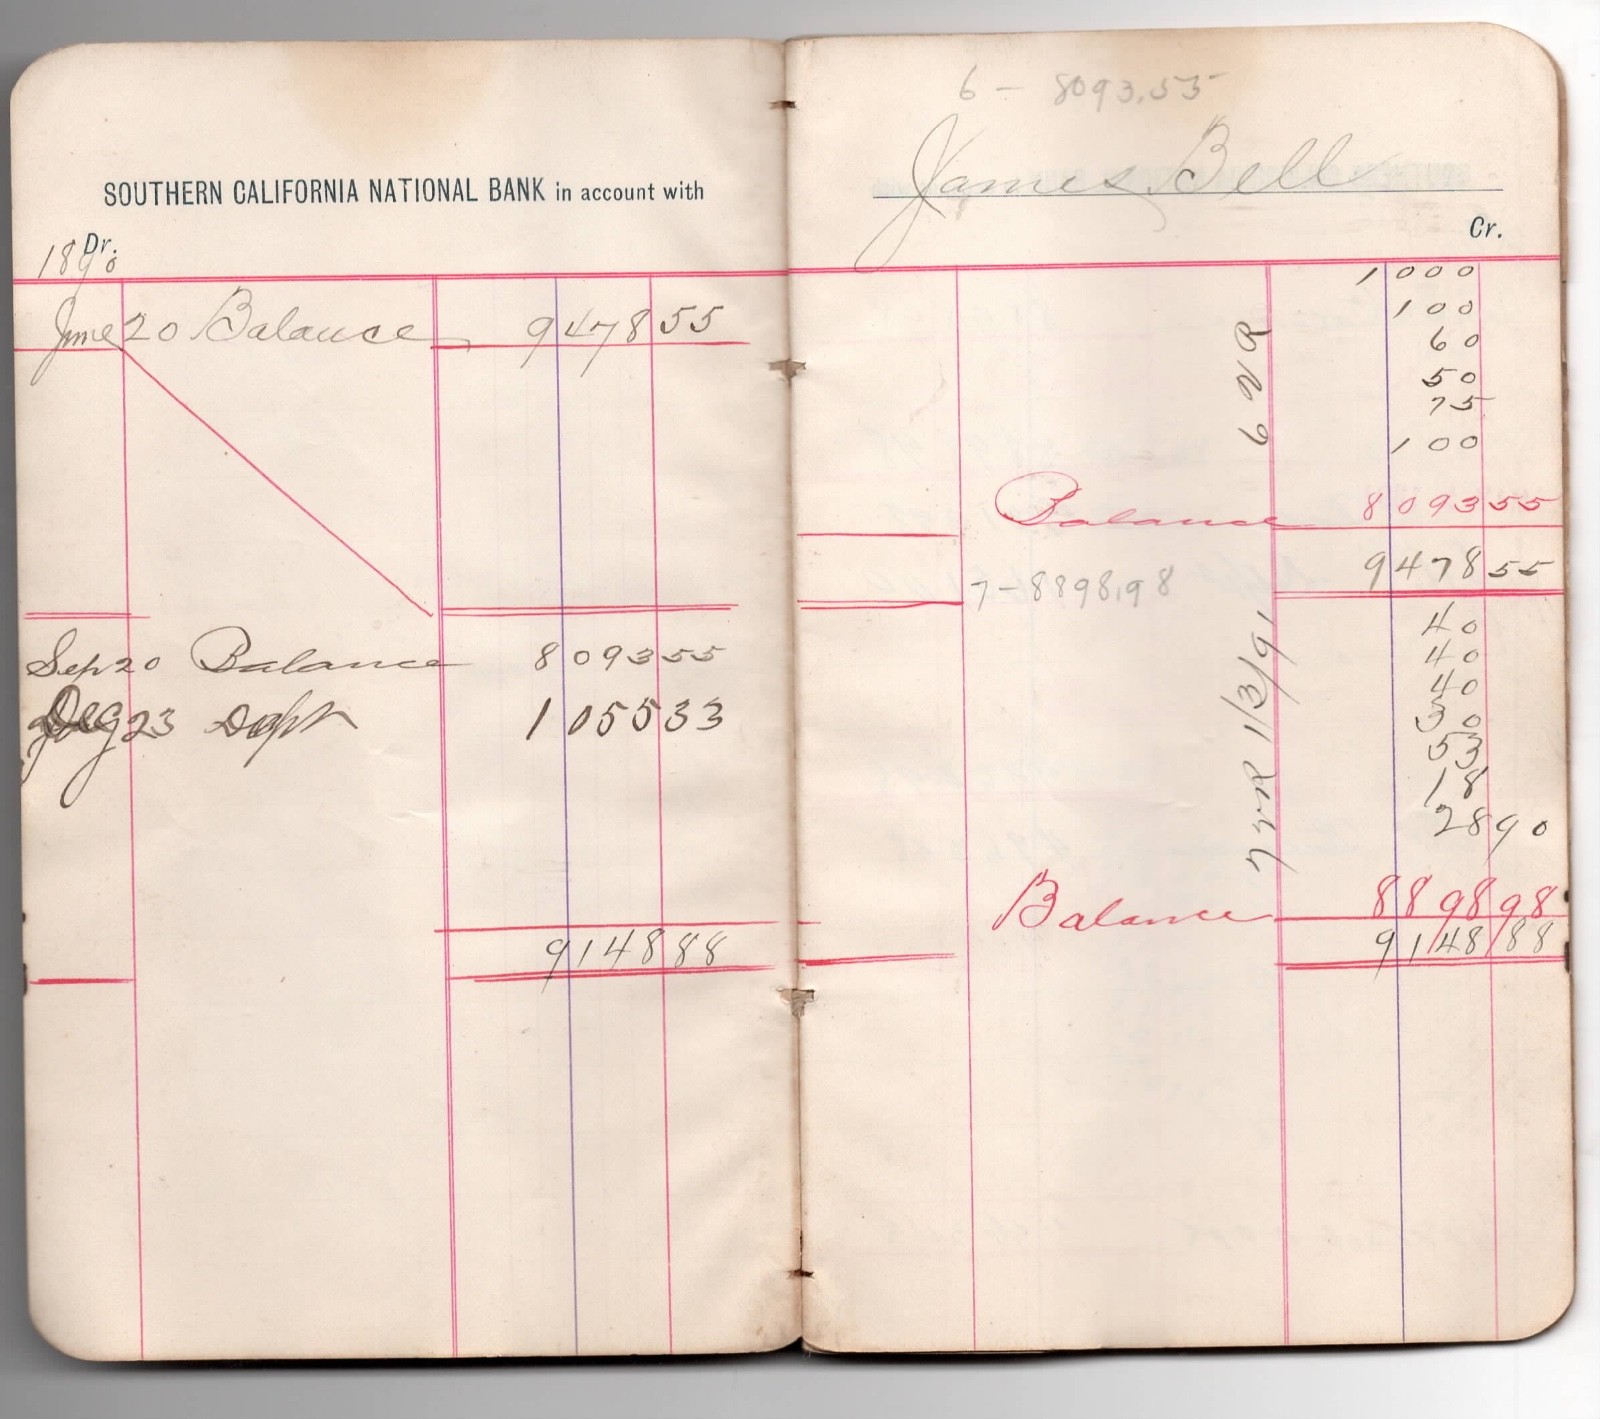 SOUTHERN CALIFORNIA NATIONAL BANK in account with
Dr.
1890
June 20 Balance 9478 55
Sep 20 Balance 8093 55
23 Dept 1055 33
9148 88
6 - 8093.55
James Bell
Cr.
1000
100
60
50
75
100
6 VR
Balance 8093 55
9478 55
7-8898.98
40
40
40
30
53
18
28 90
7 VR 1/3/91
Balance 8898 98
9148 88